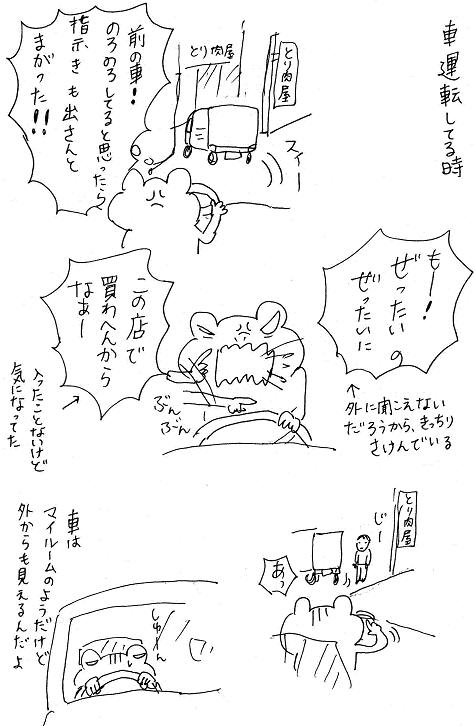 車運転してる時
とり肉屋
とり肉屋
スィー
前の車!
のろのろしてると思ったら
指示きも出さんと
まがった!!
もー!
ぜったいの
ぜったいに
↑
外に聞こえない
だろうから、きっちり
さけんでいる
この店で
買わへんから
なぁー
ぶん
ぶん
入ったことないけど
気になってた
とり肉屋
じー
あっ
車は
マイルームのようだけど
外からも見えるんだよ
しゅ〜ん